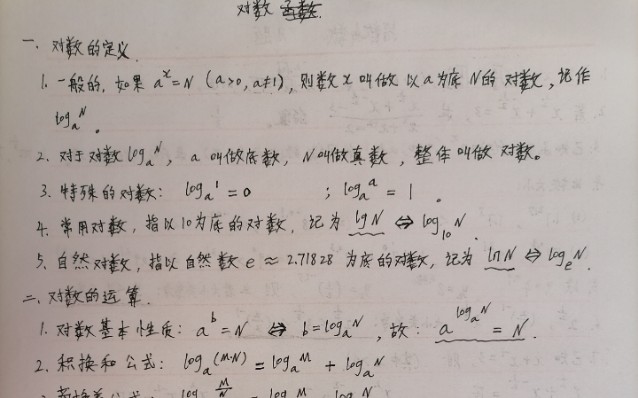 对数
一、对数的定义.
1. 一般的, 如果 a^x=N (a>0, a≠1), 则数 x 叫做 以 a 为底 N 的 对数, 记作
log_a^N 。
2. 对于对数 log_a^N, a 叫做底数, N 叫做真数, 整体叫做 对数。
3. 特殊的对数: log_a^1 = 0 ; log_a^a = 1 。
4. 常用对数, 指以10为底的对数, 记为 lg N ⇔ log_10^N.
5. 自然对数, 指以自然数 e ≈ 2.71828 为底的对数, 记为 ln N ⇔ log_e^N.
二、对数的运算.
1. 对数基本性质: a^b = N ⇔ b = log_a^N, 故: a^(log_a^N) = N.
2. 积换和公式: log_a^(M·N) = log_a^M + log_a^N